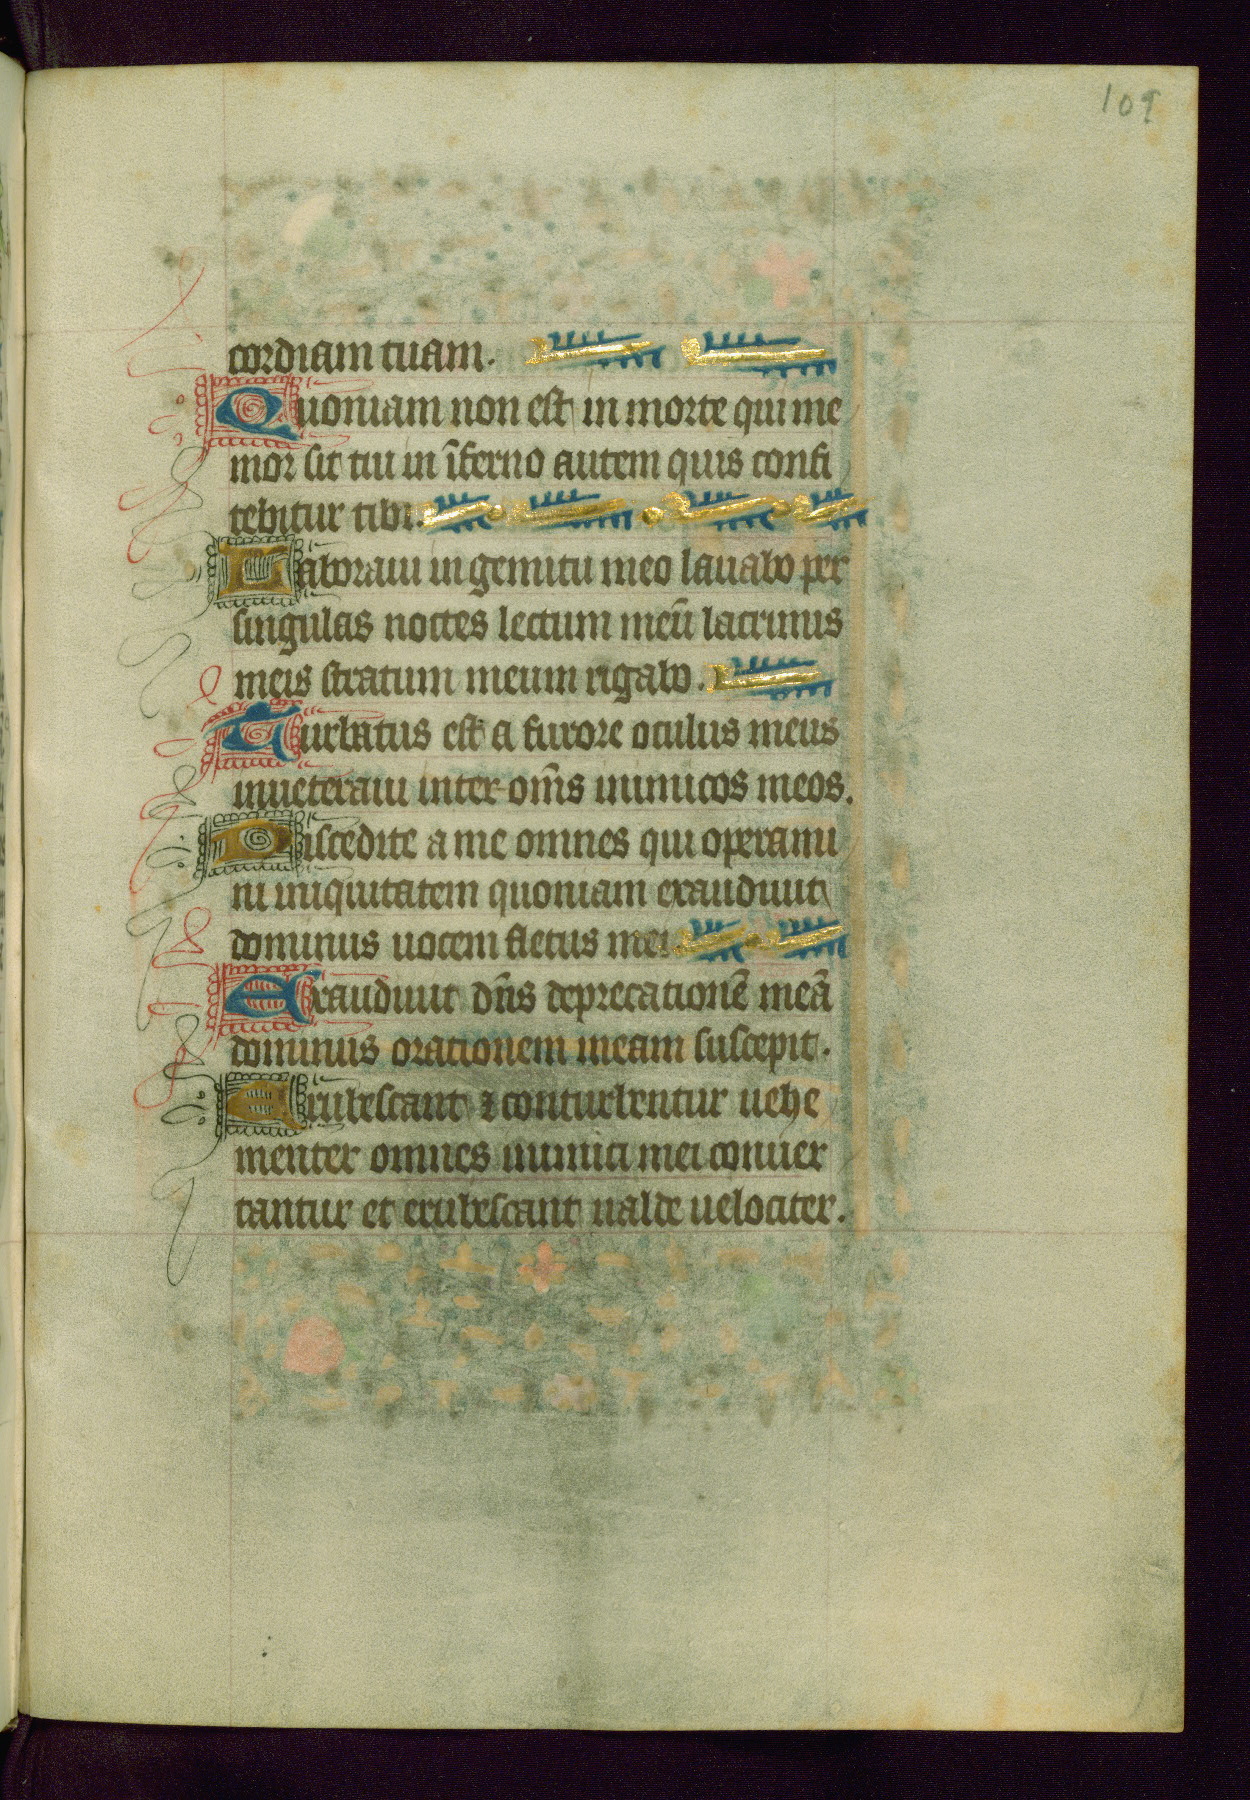 109
cordiam tuam.
Quoniam non est in morte qui me
mor sit tui in īferno autem quis confi
tebitur tibi.
Laboraui in gemitu meo lauabo per
singulas noctes lectum meū lacrimis
meis stratum meum rigabo.
Turbatus est a furore oculus meus
inueteraui inter om̄s inimicos meos.
Discedite a me omnes qui operami
ni iniquitatem quoniam exaudiuit
dominus uocem fletus mei.
Exaudiuit dn̄s deprecationē meā
dominus orationem meam suscepit.
Erubescant ⁊ conturbentur uehe
menter omnes inimici mei conuer
tantur et erubescant ualde uelociter.